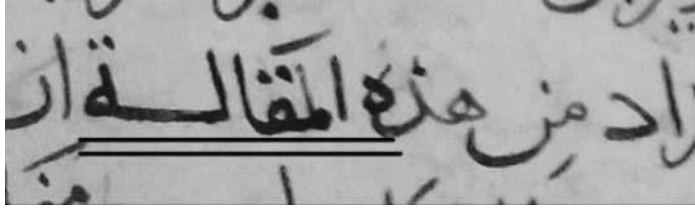 راد من هذه المقالة ان